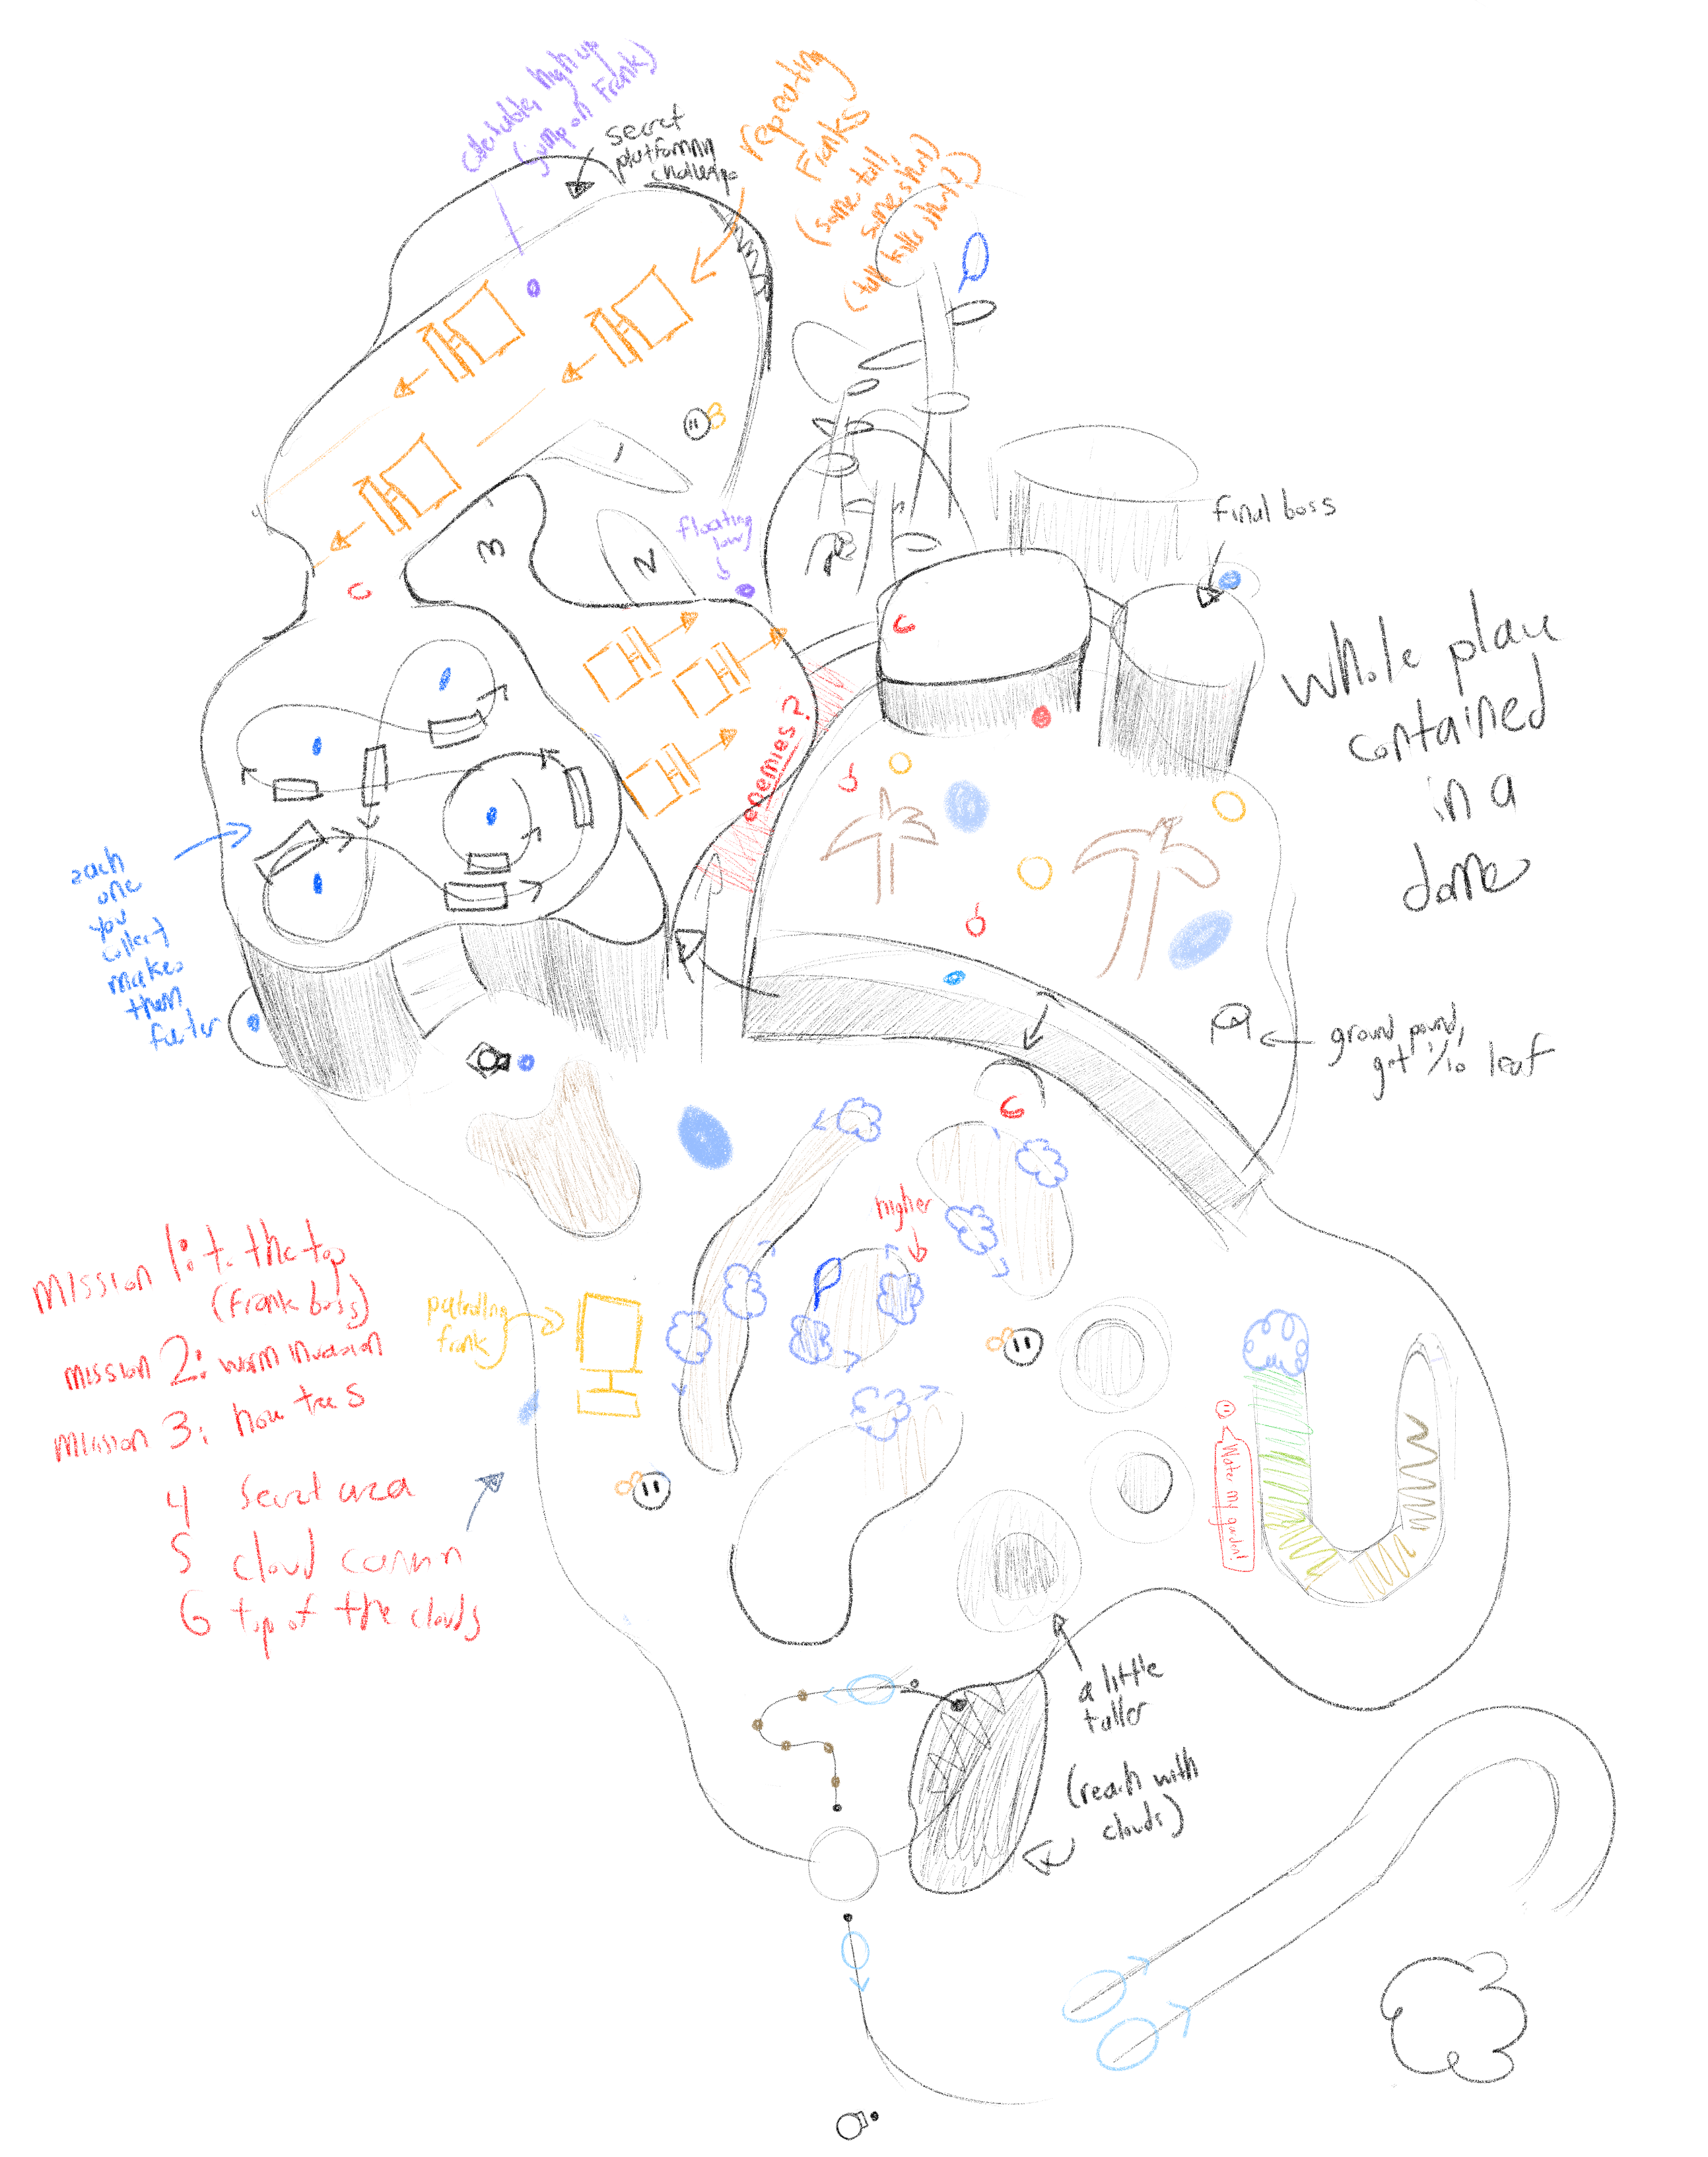 high up
(jump on Frank)
secret
platforming
challenge
repeating
Franks
(some tall,
some short)
(tall kills short?)
1
2
3
floating
low
final boss
whole place
contained
in a
dome
enemies?
each
one
you
collect
makes
them
faster
ground pound,
get 1/10 leaf
higher
mission 1: to the top
(frank boss)
mission 2: worm invasion
mission 3: trees
4 secret area
5 cloud
6 top of the clouds
patrolling
frank
Water my garden!
a little
taller
(reach with
clouds)